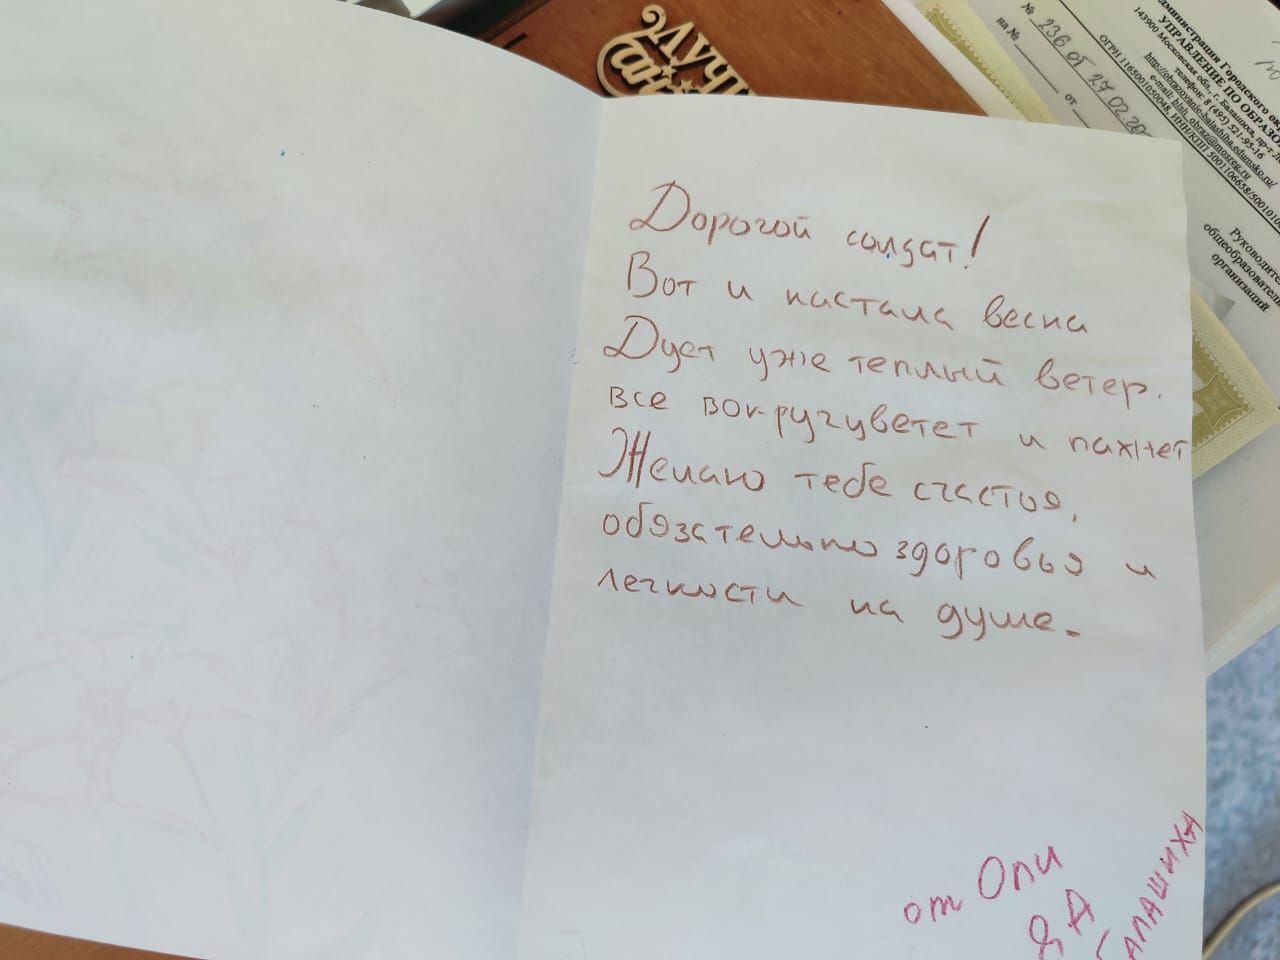 Дорогой солдат!
Вот и настала весна
Дует уже теплый ветер.
все вокруг цветет и пахнет
Желаю тебе счастья,
обязательно здоровья и
легкости на душе.
от Оли
8А
БАЛАШИХА
ЛУЧШ
№ 236 от 27.02.20
на № от
дминистрация Городского ок
УПРАВЛЕНИЕ ПО ОБРАЗО
143900 Московская обл., г. Балашиха, пр-т Л
телефон: 8 (495) 521-95-16
http://obrazovanie-balashiha.edumsko.ru/
e-mail: blsh_obraz@mosreg.ru
ОГРН 1165001050048, ИНН/КПП 5001106658/5001010
Руководите
общеобразователь
организаций